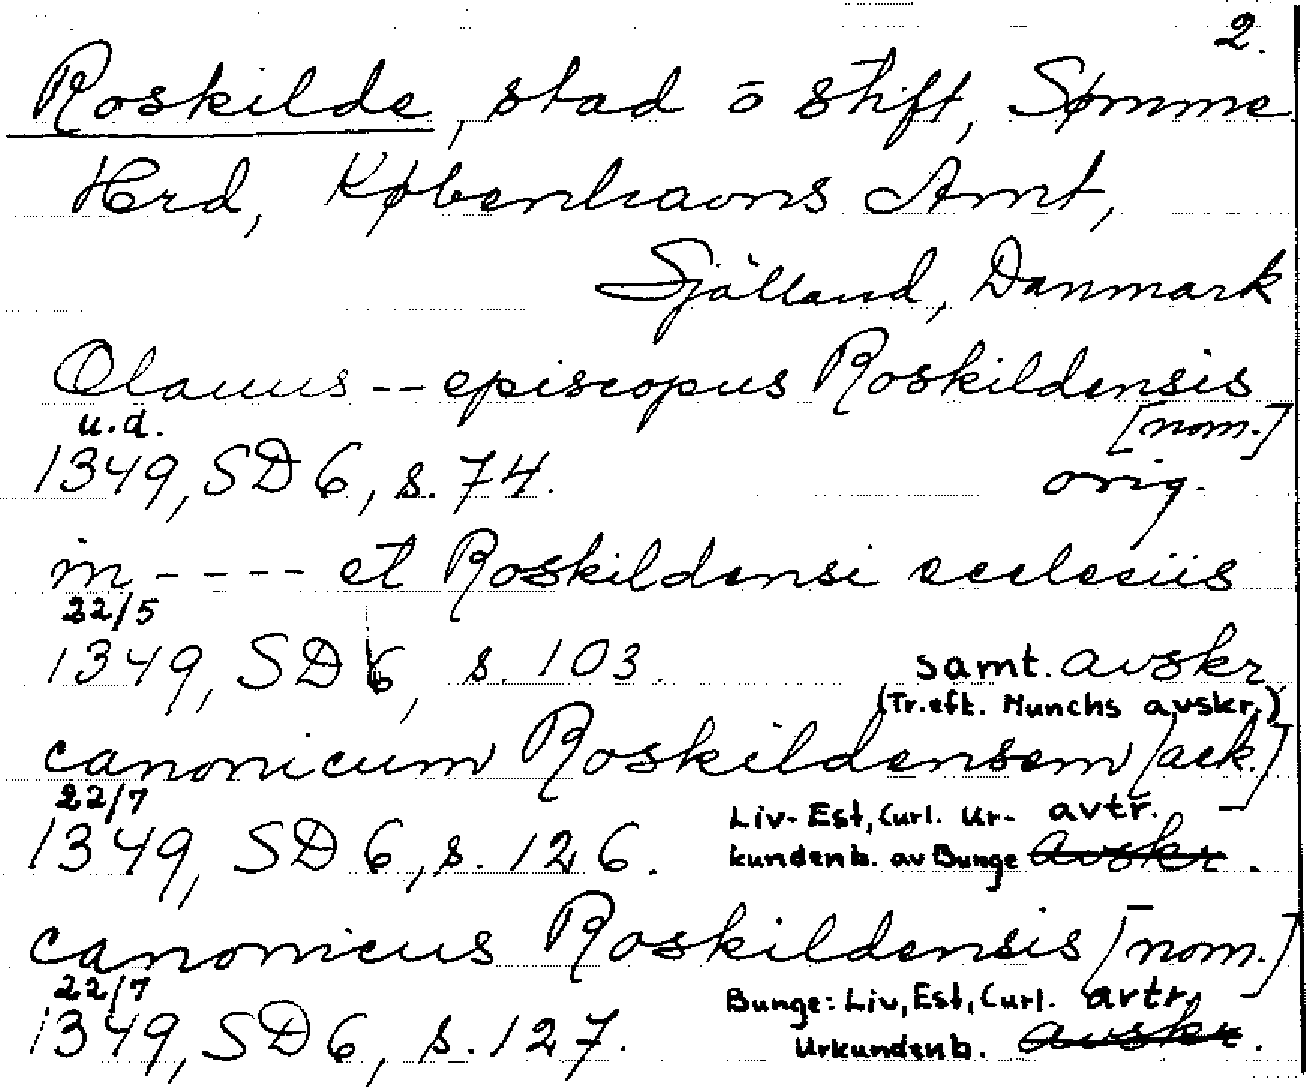 2.
Roskilde, stad o stift, Sømme
Hrd, Københavns Amt,
Själland, Danmark
Olauus -- episcopus Roskildensis
[nom.]
u.d.
1349, SD 6, s. 74. orig.
in ---- et Roskildensi ecclesiis
22/5
1349, SD 6, s. 103. samt. avskr.
(Tr. eft. Munchs avskr.)
canonicum Roskildensem [ack.]
22/7
1349, SD 6, s. 126. Liv- Est, Curl. Ur- avtr.
kundenb. av Bunge avskr.
canonicus Roskildensis [nom.]
22/7
1349, SD 6, s. 127. Bunge: Liv, Est, Curl. avtr.
Urkundenb. avskr.